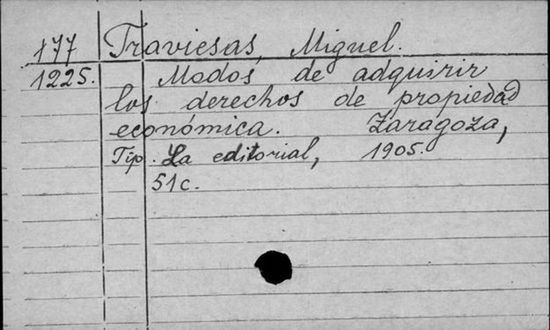 177 Traviesas, Miguel.
1225. Modos de adquirir
los derechos de propiedad
económica. Zaragoza,
Tip. La editorial, 1905.
51c.